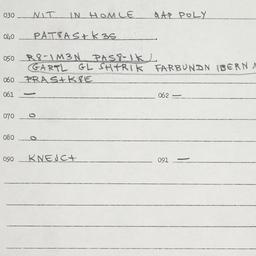 030 NIT IN HOMLE GAP POLY
040 PATRAS+K3S
050 R8-1M3N PAS8-1K
GARTL GL SHTRIK FARBUNDN IBERN
060 PRAS+K8E
061 — 062 —
070 O
080 O
090 KNEJC+ 091 —